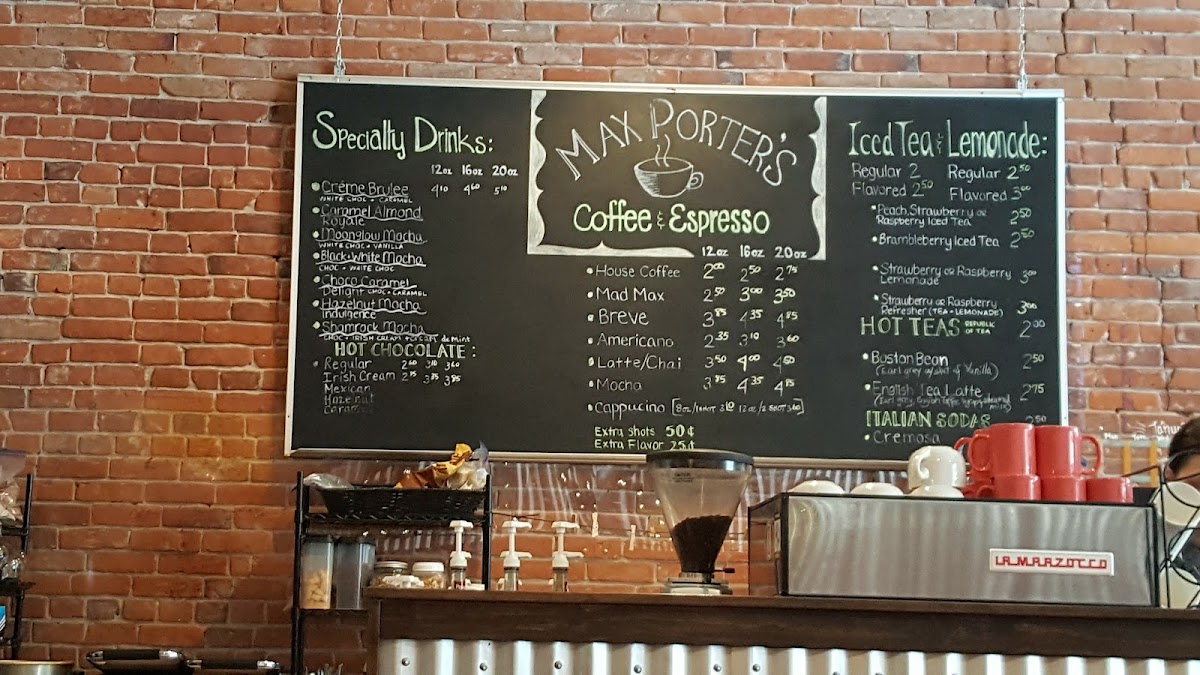 Specialty Drinks:
12oz 16oz 20oz
Crème Brulee 4¹⁰ 4⁶⁰ 5¹⁰
WHITE CHOC + CARAMEL
Caramel Almond
Royale
Moonglow Mocha
WHITE CHOC + VANILLA
Black + White Mocha
CHOC + WHITE CHOC
Choco Caramel
Delight CHOC + CARAMEL
Hazelnut Mocha
Indulgence
Shamrock Mocha
CHOC + IRISH CREAM + de Mint
HOT CHOCOLATE:
Regular 2⁶⁰ 3¹⁰ 3⁶⁰
Irish Cream 2⁸⁵ 3³⁵ 3⁸⁵
Mexican
Hazelnut
Caramel
MAX PORTER'S
Coffee & Espresso
12oz 16oz 20oz
House Coffee 2⁰⁰ 2⁵⁰ 2⁷⁵
Mad Max 2⁵⁰ 3⁰⁰ 3⁵⁰
Breve 3⁸⁵ 4³⁵ 4⁸⁵
Americano 2³⁵ 3¹⁰ 3⁶⁰
Latte/Chai 3⁵⁰ 4⁰⁰ 4⁵⁰
Mocha 3⁸⁵ 4³⁵ 4⁸⁵
Cappucino [8oz/1 SHOT 3¹⁰ 12oz/2 SHOT 3⁶⁰]
Extra Shots 50¢
Extra Flavor 25¢
Iced Tea & Lemonade:
Regular 2 Regular 2⁵⁰
Flavored 2⁵⁰ Flavored 3⁰⁰
Peach, Strawberry or
Raspberry Iced Tea 2⁵⁰
Brambleberry Iced Tea 2⁵⁰
Strawberry or Raspberry
Lemonade 3⁰⁰
Strawberry or Raspberry
Refresher (TEA + LEMONADE) 3⁰⁰
HOT TEAS REPUBLIC OF TEA 2⁰⁰
Boston Bean 2⁵⁰
(Earl grey w/shot of Vanilla)
English Tea Latte 2⁷⁵
ITALIAN SODAS 2⁵⁰
Cremosa
LA MARZOCCO